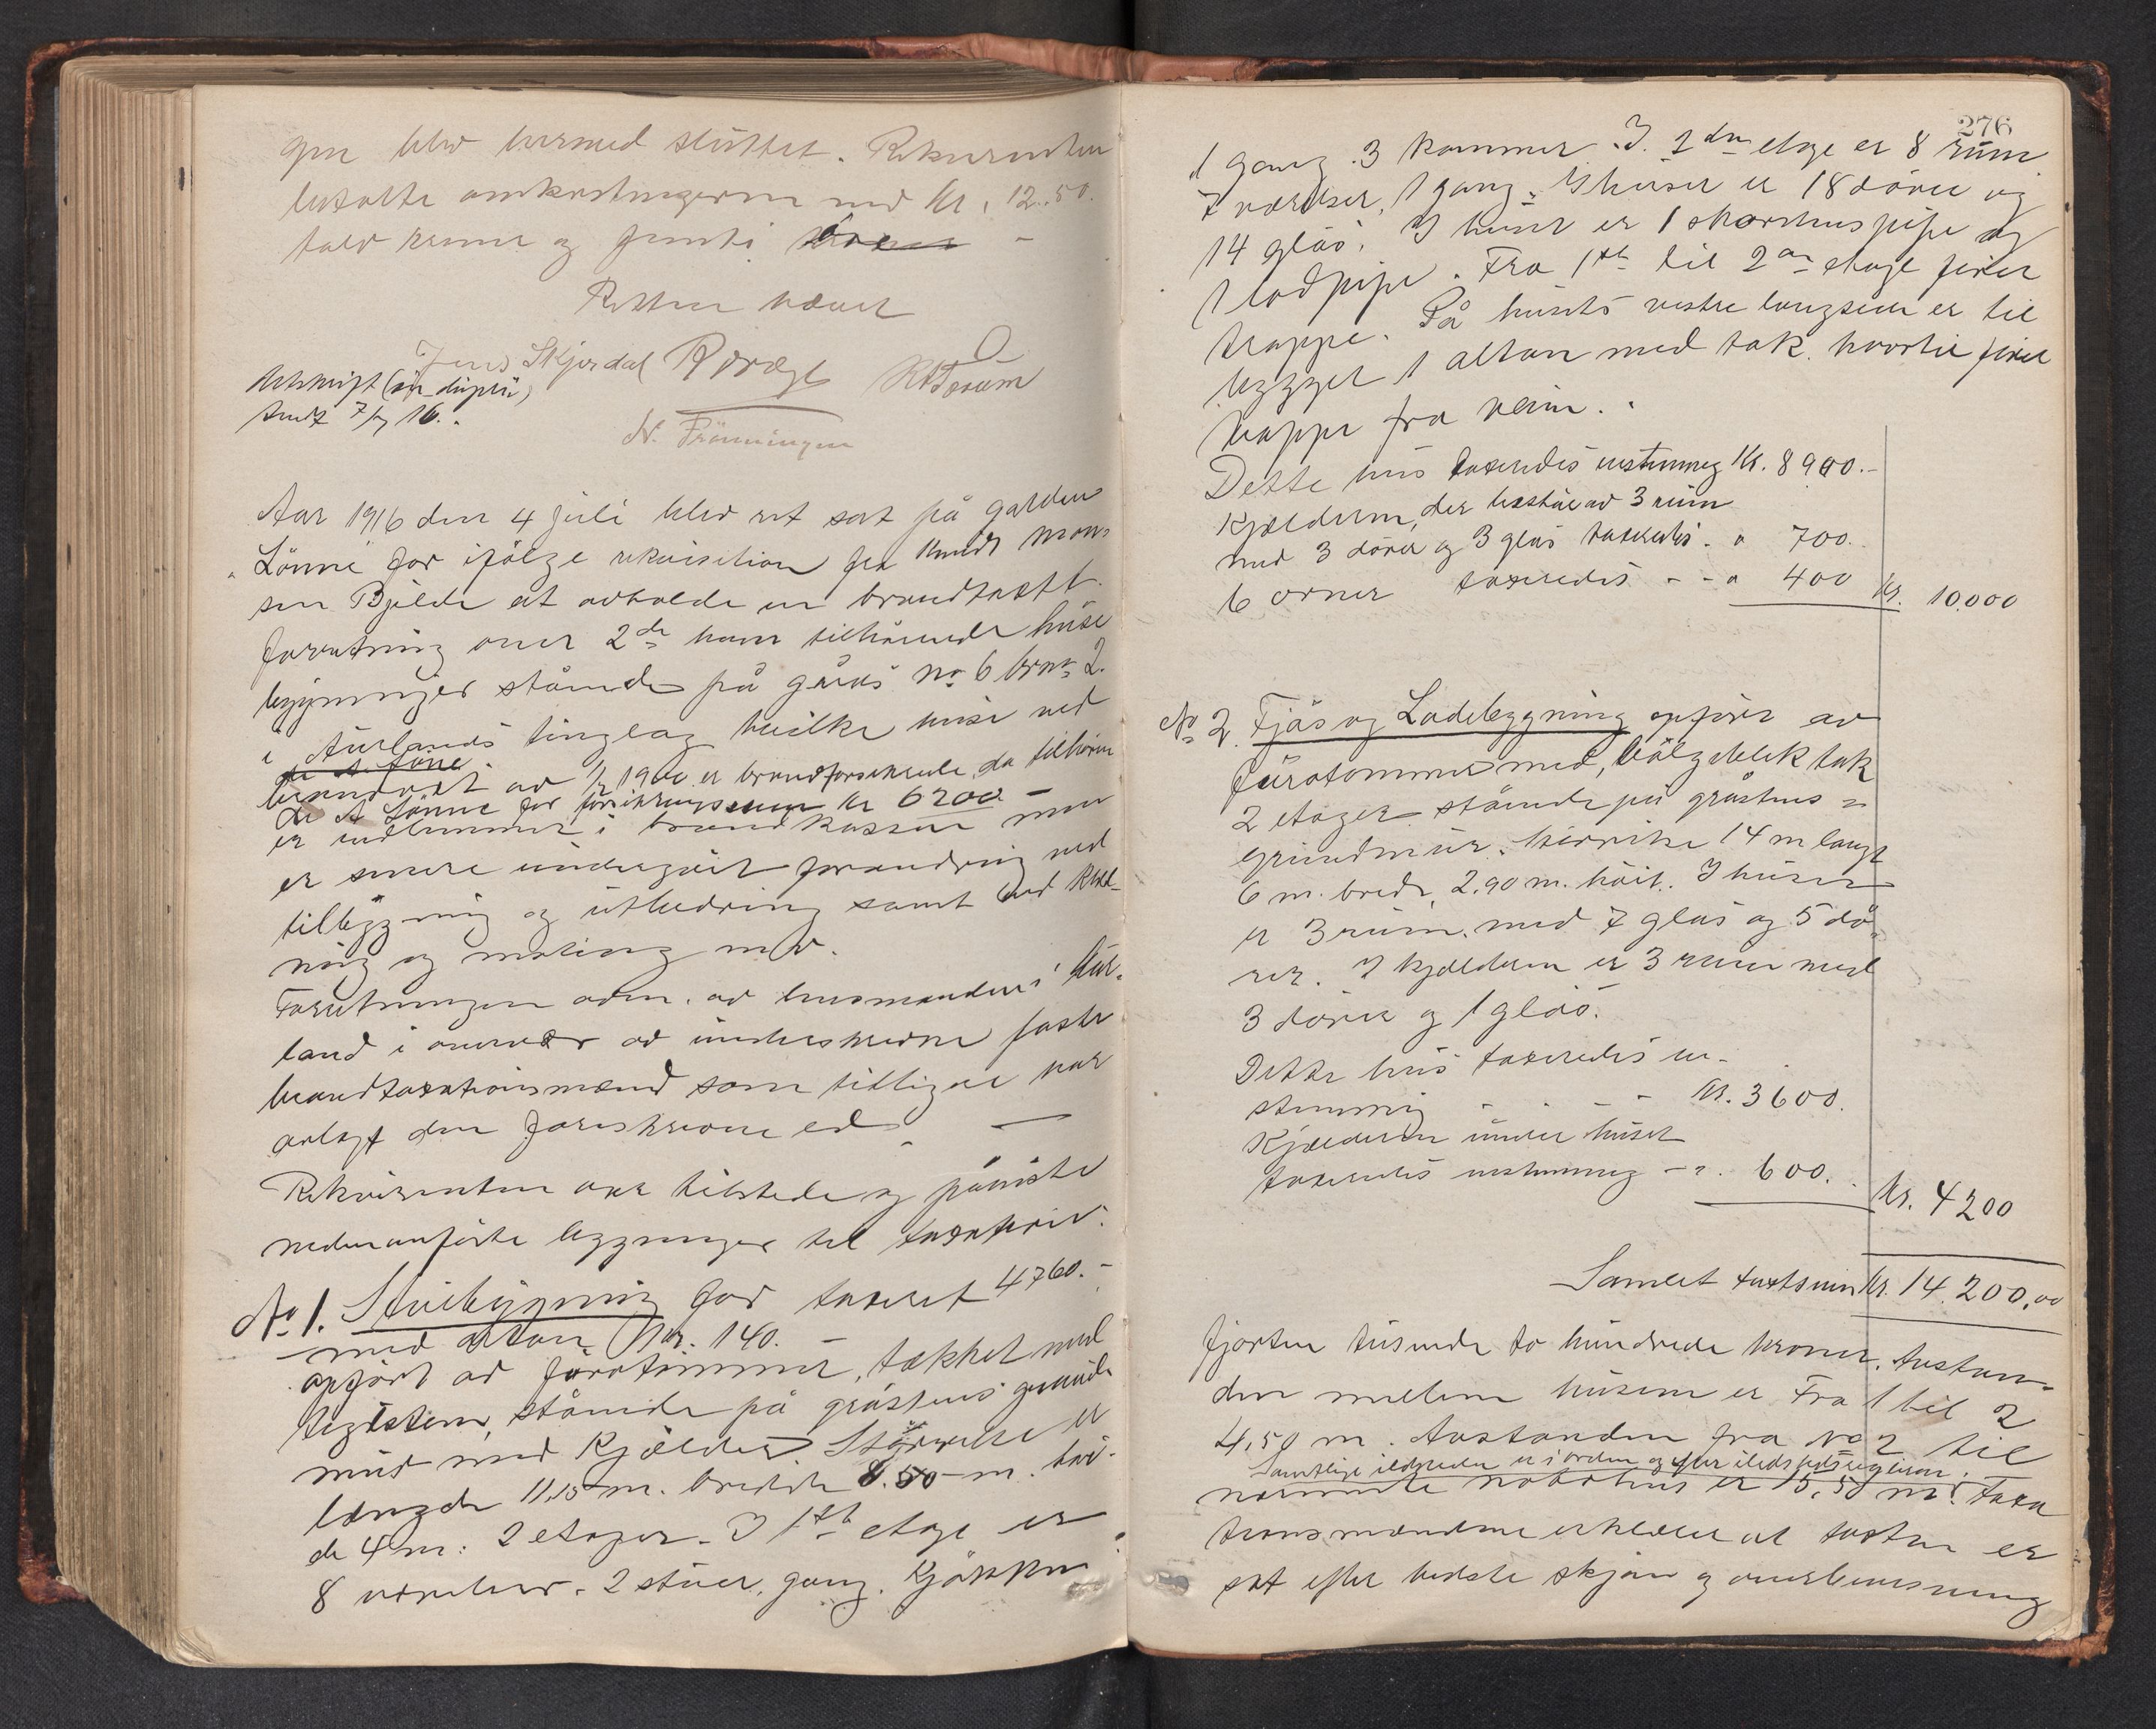 gen blev hermed sluttet. Rekvirenten
betalte omkostningerne med Kr. 12.50.
tolv kroner og femti
Retten hævet
Jens Skjerdal
Utskrift (in duplo)
sendt 7/7 16.
N. Frönningen
Aar 1916 den 4 juli blev ret sat på garden
Lönne for ifölge rekvisition fra Knudt Mon-
sen Bjelde at avholde en brandtakst
forretning over 2de ham tilhörende huse
bygninger stående på gårds no 6 brns 2.
i Aurlands tinglag hvilke huse ved
brandtakst av 1900 er brandforsikrede da tilhörer
de A Lönne for forsikringssum Kr 6200 -
er indlemmet i brandkassen men
er senere undergåt forandring ved
tilbygning og utbedring samt ved kled-
ning og maling m.v.
Forretningen adm. av lensmanden i Aur-
land i overvær av underskrevne faste
brandtaxationsmænd som tidligere har
avlagt den foreskrevne ed.
Rekvirenten var tilstede og påviste
nedenanförte bygninger til taxation.
No 1. Stuebygning för taxeret 4760.-
med altan Kr. 140. -
opfört av furotömmer, tækket med
teglsten, stående på gråstens grund
mur med Kjælder Störrelse er
længde 11,15 m. bredde 8.50 m. höi-
de 4 m: 2 etager. I 1ste etage er
8 værelser. 2 stuer, gang. Kjökken
276
1 gang. 3 kammer. I 2den etage er 8 rum
7 værelser, 1 gang. I huset er 18 dörer og
14 glas. I huset er 1 skorstenspipe og
1 lodpipe. Fra 1ste til 2den etage förer
trappe. På husets vestre langside er til
bygget 1 altan med tak. hvortil förer
trappe fra veien.
Dette hus taxeredes enstemmig Kr. 8900.-
Kjælderen, der består av 3 rum
med 3 dörer og 3 glas taxeredes - " 700.
6 ovner taxeredes - - " 400 Kr. 10.000
No 2. Fjös og Ladebygning opfört av
furotömmer med, bölgeblik tak
2 etager stående på gråstens
grundmur. Störrelse 14 m langt
6 m. bredt, 2,90 m. höit. I huset
er 3 rum. med 7 glas og 5 dö-
rer. I kjælderen er 3 rum med
3 dörer og 1 glas.
Dette hus taxeredes en-
stemmig - - - - Kr. 3600.
Kjælderen under huset
taxeredes enstemmig - ". 600. Kr. 4200
Samlet takstsum Kr. 14.200,00
fjorten tusende to hundrede kroner. Avstan-
den mellem husene er Fra 1 til 2
4,50 m. Avstanden fra No 2 til
Samtlige ildsteder er i orden og efter ildsfastsreglerne.
nærmeste nabohus er 15,50 m. Taxa
tionsmændene erklærer at taksten er
sat efter bedste skjön og overbevisning